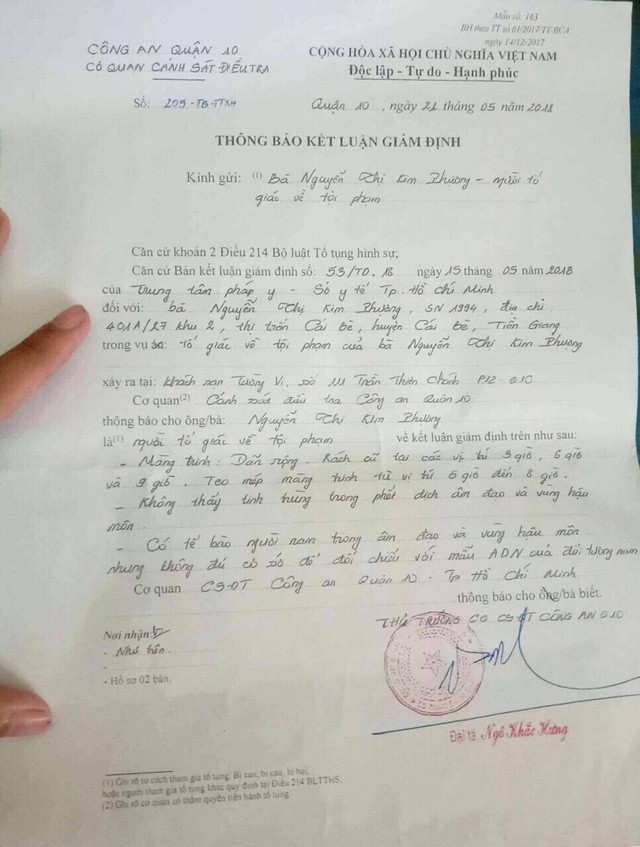 Mẫu số: 163
BH theo TT số 61/2017/TT-BCA
ngày 14/12/2017
CÔNG AN QUẬN 10
CƠ QUAN CẢNH SÁT ĐIỀU TRA
CỘNG HÒA XÃ HỘI CHỦ NGHĨA VIỆT NAM
Độc lập - Tự do - Hạnh phúc
Số: 205-TB-TTXH
Quận 10, ngày 21 tháng 05 năm 2018
THÔNG BÁO KẾT LUẬN GIÁM ĐỊNH
Kính gửi: (1) Bà Nguyễn Thị Kim Phượng - người tố
giác về tội phạm
Căn cứ khoản 2 Điều 214 Bộ luật Tố tụng hình sự;
Căn cứ Bản kết luận giám định số: 53/TD.18 ngày 15 tháng 05 năm 2018
của Trung tâm pháp y - Sở y tế Tp. Hồ Chí Minh
đối với: bà Nguyễn Thị Kim Phượng, SN 1994, địa chỉ
401A/27 khu 2, thị trấn Cái Bè, huyện Cái Bè, Tiền Giang
trong vụ tố giác về tội phạm của bà Nguyễn Thị Kim Phượng
xảy ra tại: khách sạn Tường Vi, số 111 Trần Thiện Chánh P12-Q10
Cơ quan(2) Cảnh sát điều tra Công an Quận 10
thông báo cho ông/bà: Nguyễn Thị Kim Phượng
là(1) người tố giác về tội phạm về kết luận giám định trên như sau:
- Màng trinh: Dãn rộng - Rách cũ tại các vị trí 3 giờ, 6 giờ
và 9 giờ. Teo mép màng trinh từ vị trí 6 giờ đến 8 giờ.
- Không thấy tinh trùng trong phết dịch âm đạo và vùng hậu
môn.
- Có tế bào người nam trong âm đạo và vùng hậu môn
nhưng không đủ cơ sở để đối chiếu với mẫu ADN của đối tượng
Cơ quan CSĐT Công an Quận 10 - Tp Hồ Chí Minh
thông báo cho ông/bà biết.
THỦ TRƯỞNG CQ CSĐT CÔNG AN Q10
Nơi nhận:
- Như trên.
-
- Hồ sơ 02 bản.
Đại tá Ngô Khắc Hưng
(1) Ghi rõ tư cách tham gia tố tụng: Bị can, bị cáo, bị hại,
hoặc người tham gia tố tụng khác quy định tại Điều 214 BLTTHS.
(2) Ghi rõ cơ quan có thẩm quyền tiến hành tố tụng.